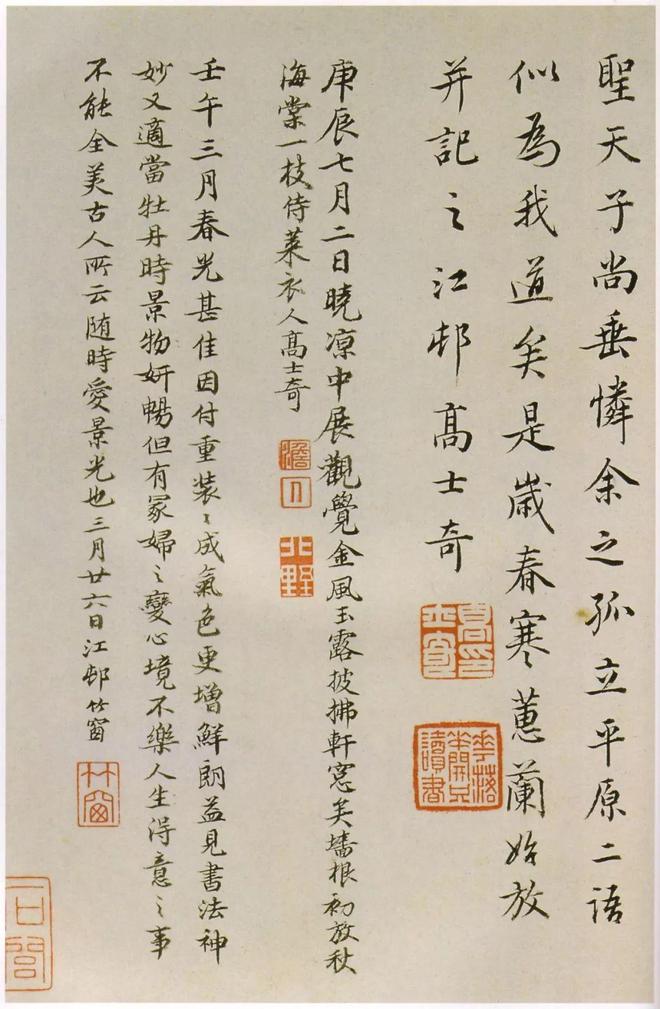 聖天子尚垂憐余之孤立平原二語
似為我道矣是歲春寒蕙蘭始放
并記之江邨高士奇
庚辰七月二日曉涼中展觀覺金風玉露披拂軒窓矣墻根初放秋
海棠一枝侍萊衣人高士奇
壬午三月春光甚佳因付重裝〻成氣色更增鮮朗益見書法神
妙又適當牡丹時景物妍暢但有冢婦之變心境不樂人生得意之事
不能全美古人所云隨時愛景光也三月廿六日江邨竹窗
高士奇印
花落半開只讀書
澹人
北墅
竹窗